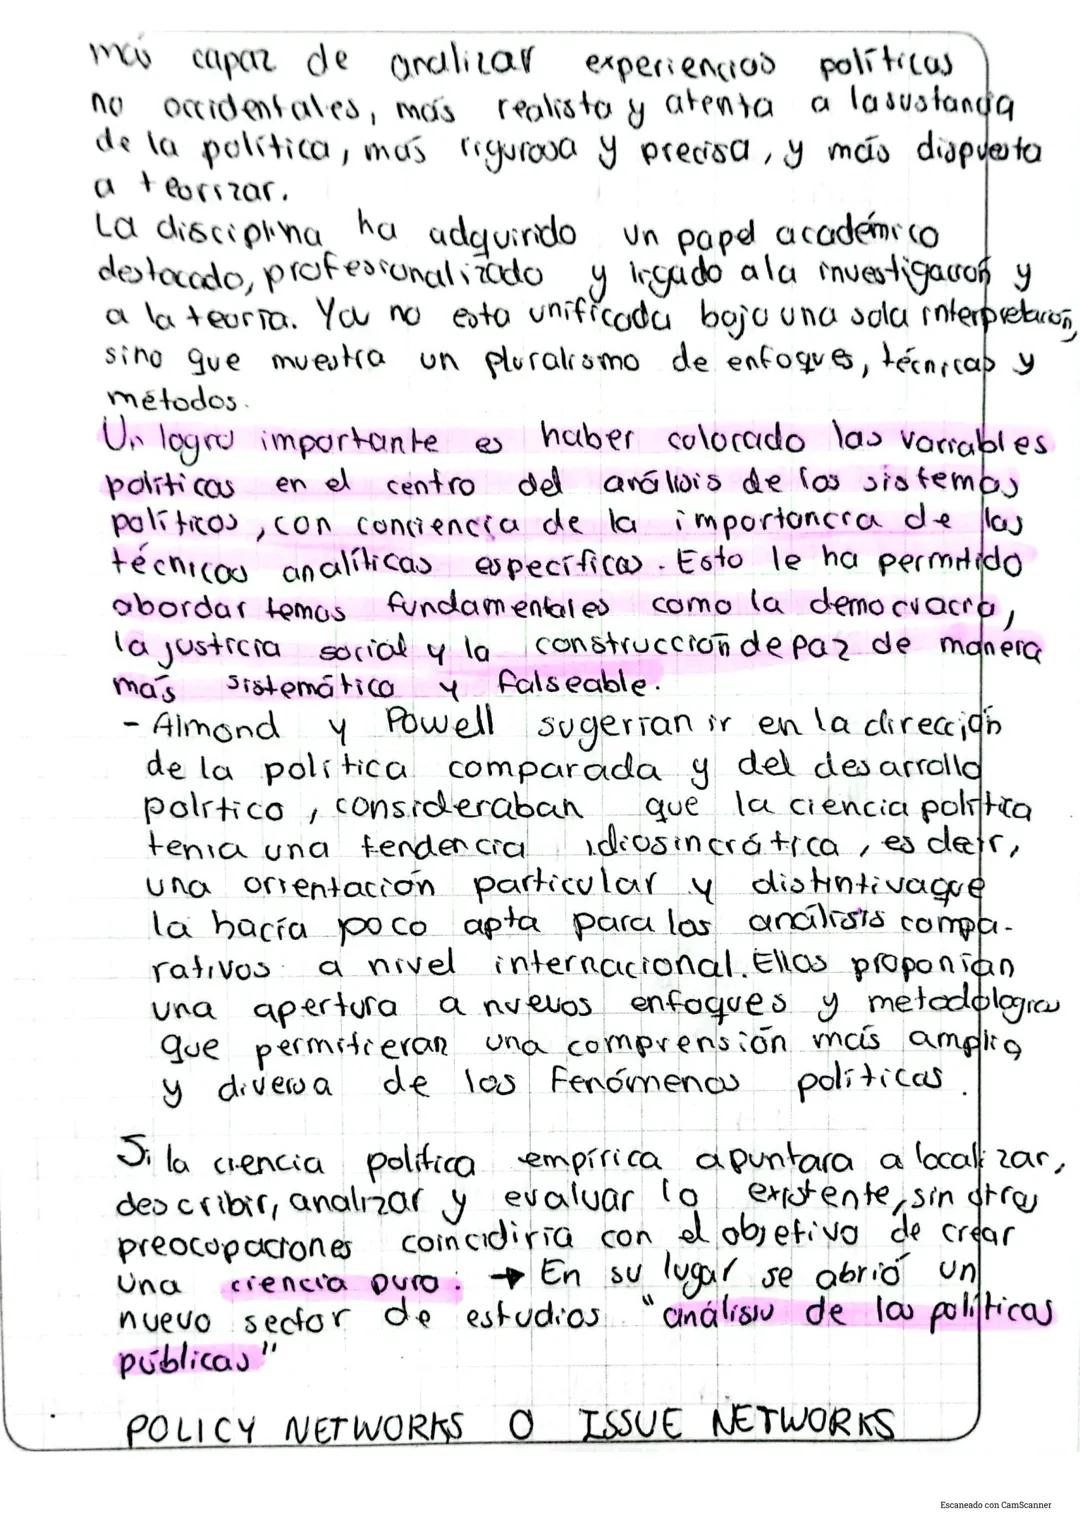 más capaz de analizar experiencias políticas
no occidentales, más realista y atenta a la sustancia
de la política, más rigurosa y precisa, y más dispuesta
a teorizar.
La disciplina ha adquirido un papel académico
destacado, profesionalizado y ligado a la investigación y
a la teoría. Ya no esta unificada bajo una sola interpretación,
sino que muestra un pluralismo de enfoques, técnicas y
métodos.
Un logro importante es haber colocado las variables
políticas en el centro del análisis de los sistemas
políticos, con conciencia de la importancia de las
técnicas analíticas específicas. Esto le ha permitido
abordar temas fundamentales como la democracia,
la justicia social y la construcción de paz de manera
más sistemática y falseable.
- Almond y Powell sugerían ir en la dirección
de la política comparada y del desarrollo
político, consideraban que la ciencia política
tenía una tendencia idiosincrática, es decir,
una orientación particular y distintiva que
la hacía poco apta para los análisis compa-
rativos a nivel internacional. Ellos proponían
una apertura a nuevos enfoques y metodologías
que permitieran una comprensión más amplia
y diversa de los fenómenos políticos.
Si la ciencia política empírica apuntara a localizar,
describir, analizar y evaluar lo existente, sin otras
preocupaciones coincidiría con el objetivo de crear
una ciencia pura. → En su lugar se abrió un
nuevo sector de estudios "análisis de las políticas
públicas"
POLICY NETWORKS O ISSUE NETWORKS
Escaneado con CamScanner